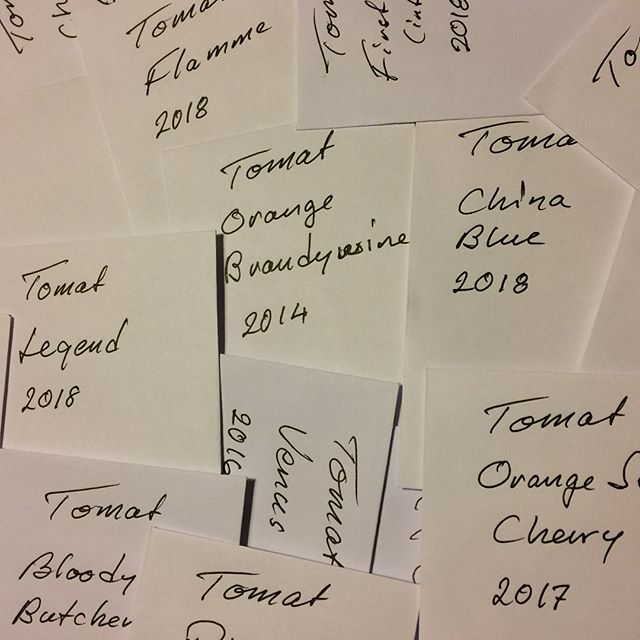 Tomat
Flamme
2018
First
2018
Tomat
Orange
Brandywine
2014
China
Blue
2018
Tomat
Legend
2018
Tomat
Venus
2016
Tomat
Orange
Cherry
2017
Tomat
Bloody
Butcher
Tomat